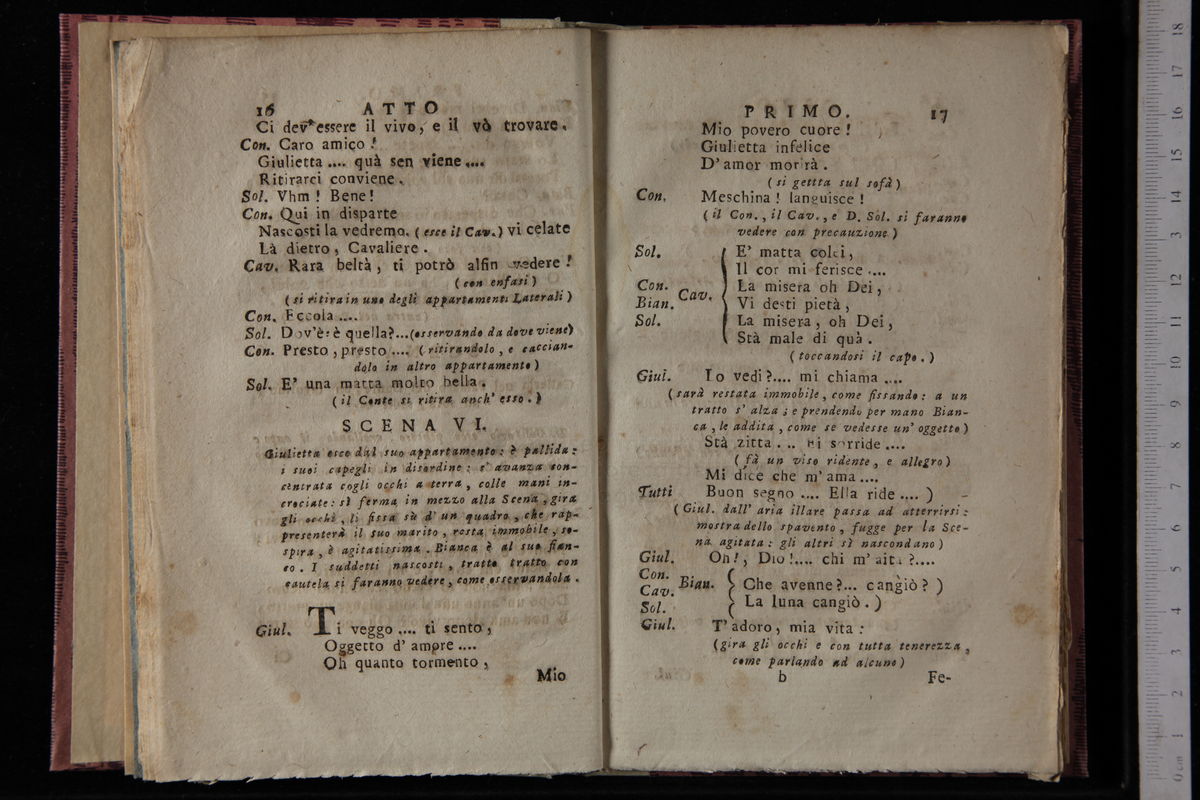 16 ATTO
Ci dev'essere il vivo, e il vò trovare.
Con. Caro amico!
Giulietta .... quà sen viene....
Ritirarci conviene.
Sol. Vhm! Bene!
Con. Qui in disparte
Nascosti la vedremo. (esce il Cav.) vi celate
Là dietro, Cavaliere.
Cav. Rara beltà, ti potrò alfin vedere!
(con enfasi)
(si ritira in uno degli appartamenti Laterali)
Con. Eccola ....
Sol. Dov'è: è quella?...(osservando da dove viene)
Con. Presto, presto .... (ritirandolo, e caccian-
dolo in altro appartamento)
Sol. E' una matta molto bella.
(il Conte si ritira anch' esso.)
SCENA VI.
Giulietta esce dal suo appartamento: è pallida:
i suoi capegli in disordine: s' avanza con-
centrata cogli occhi a terra, colle mani in-
crociate: sì ferma in mezzo alla Scena, gira
gli occhi, li fissa sù d' un quadro, che rap-
presenterà il suo marito, resta immobile, so-
spira, è agitatissima. Bianca è al suo fian-
co. I suddetti nascosti, tratto tratto con
cautela si faranno vedere, come osservandola.
Giul. Ti veggo .... ti sento,
Oggetto d' amore ....
Oh quanto tormento,
Mio
PRIMO. 17
Mio povero cuore!
Giulietta infelice
D' amor morirà.
(si gettta sul sofà)
Con. Meschina! languisce!
(il Con., il Cav., e D. Sol. si faranno
vedere con precauzione)
Sol. E' matta colei,
Il cor mi ferisce ....
Con. Cav. La misera oh Dei,
Bian. Vi desti pietà,
Sol. La misera, oh Dei,
Stà male di quà.
(toccandosi il capo.)
Giul. Lo vedi?.... mi chiama ....
(sarà restata immobile, come fissando: a un
tratto s' alza; e prendendo per mano Bian-
ca, le addita, come se vedesse un' oggetto)
Stà zitta . .. mi sorride ....
(fà un viso ridente, e allegro)
Mi dice che m' ama ....
Tutti Buon segno .... Ella ride .... )
(Giul. dall' aria illare passa ad atterrirsi:
mostra dello spavento, fugge per la Sce-
na agitata: gli altri sì nascondano)
Giul. Oh!, Dio!.... chi m' aita ?....
Con.
Cav. Bian. Che avenne?... cangiò? )
Sol. La luna cangiò. )
Giul. T' adoro, mia vita:
(gira gli occhi e con tutta tenerezza,
come parlando ad alcuno)
b Fe-
0 cm 1 2 3 4 5 6 7 8 9 10 11 12 13 14 15 16 17 18